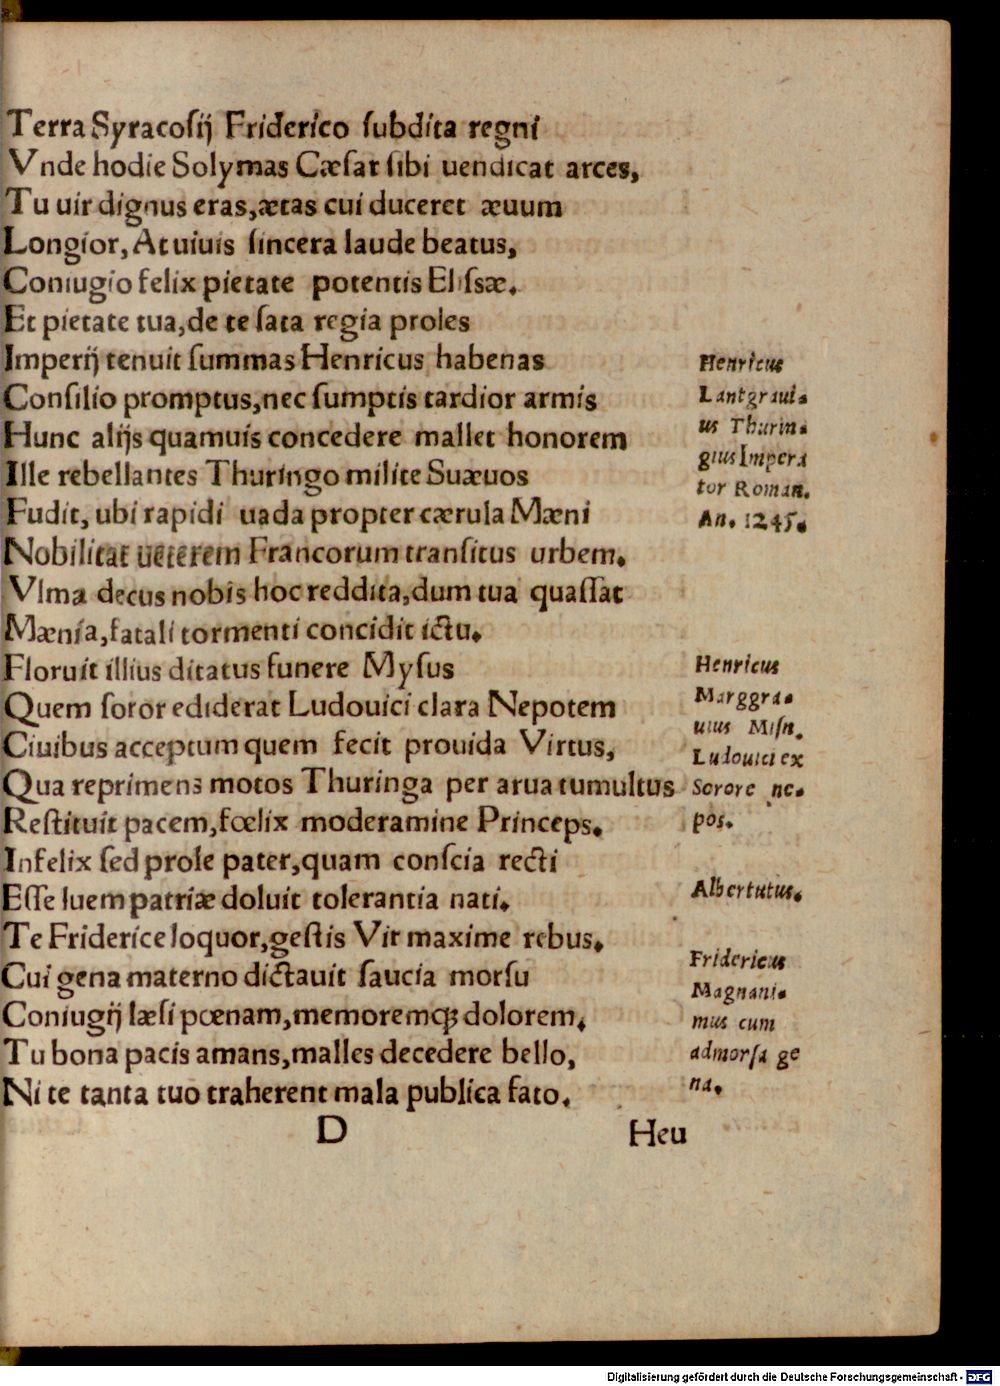 Terra Syracoſij Friderico ſubdita regni
Vnde hodie Solymas Cæſar ſibi uendicat arces,
Tu uir dignus eras,ætas cui duceret æuum
Longior, At uiuis ſincera laude beatus,
Coniugio felix pietate potentis Elyſsæ.
Et pietate tua,de te ſata regia proles
Imperij tenuit ſummas Henricus habenas
Conſilio promptus,nec ſumptis tardior armis
Hunc alijs quamuis concedere mallet honorem
Ille rebellantes Thuringo milite Suæuos
Fudit, ubi rapidi uada propter cærula Mæni
Nobilitat ueterem Francorum tranſitus urbem.
Vlma decus nobis hoc reddita,dum tua quaſſat
Mænia,fatali tormenti concidit ictu.
Floruit illius ditatus funere Myſus
Quem ſoror ediderat Ludouici clara Nepotem
Ciuibus acceptum quem fecit prouida Virtus,
Qua reprimens motos Thuringa per arua tumultus
Reſtituit pacem,fœlix moderamine Princeps.
Infelix ſed prole pater,quam conſcia recti
Eſſe luem patriæ doluit tolerantia nati.
Te Friderice loquor,geſtis Vir maxime rebus.
Cui gena materno dictauit ſaucia morſu
Coniugij læſi pœnam,memoremꝗ dolorem.
Tu bona pacis amans,malles decedere bello,
Ni te tanta tuo traherent mala publica fato.
D Heu
Henricus
Lantgraui-
us Thurin-
gius Impera
tor Roman.
An. 1245.
Henricus
Marggra-
uius Miſn.
Ludouici ex
Sorore ne-
pos.
Albertutus.
Fridericus
Magnani-
mus cum
admorſa ge
na.
Digitalisierung gefördert durch die Deutsche Forschungsgemeinschaft - DFG